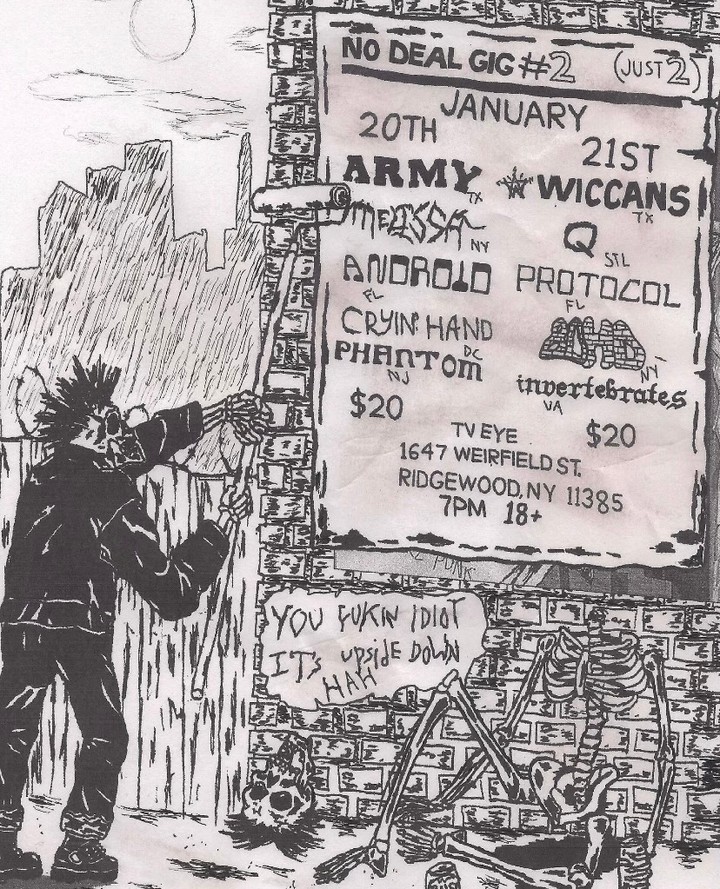 NO DEAL GIG #2 (JUST 2)
JANUARY
20TH
ARMY
TX
MELISSA
NY
ANDROID
FL
CRYIN' HAND
DC
PHANTOM
NJ
$20
21ST
WICCANS
TX
Q
STL
PROTOCOL
FL
NY
invertebrates
VA
$20
TV EYE
1647 WEIRFIELD ST.
RIDGEWOOD, NY 11385
7PM 18+
YOU FUKN IDIOT
IT'S UPSIDE DOWN
HAH